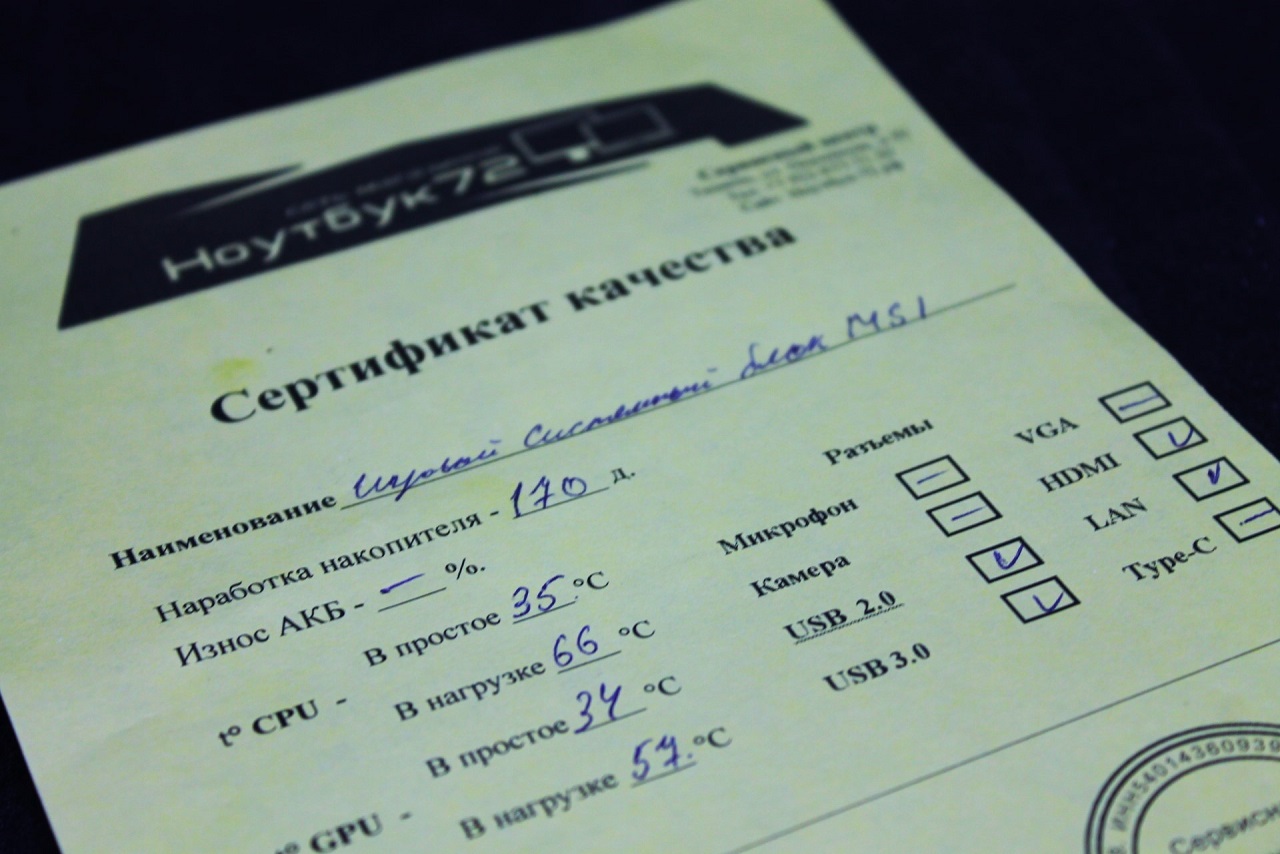 Ноутбук72
Сервисный центр
Сертификат качества
Наименование Игровой Системный блок MSI
Наработка накопителя - 170 д.
Износ АКБ - — %.
t° CPU - В простое 35 °C
В нагрузке 66 °C
t° GPU - В простое 34 °C
В нагрузке 57 °C
Разъемы
Микрофон
Камера
USB 2.0
USB 3.0
VGA
HDMI
LAN
Type-C
ИНН5401436093
Сервисн